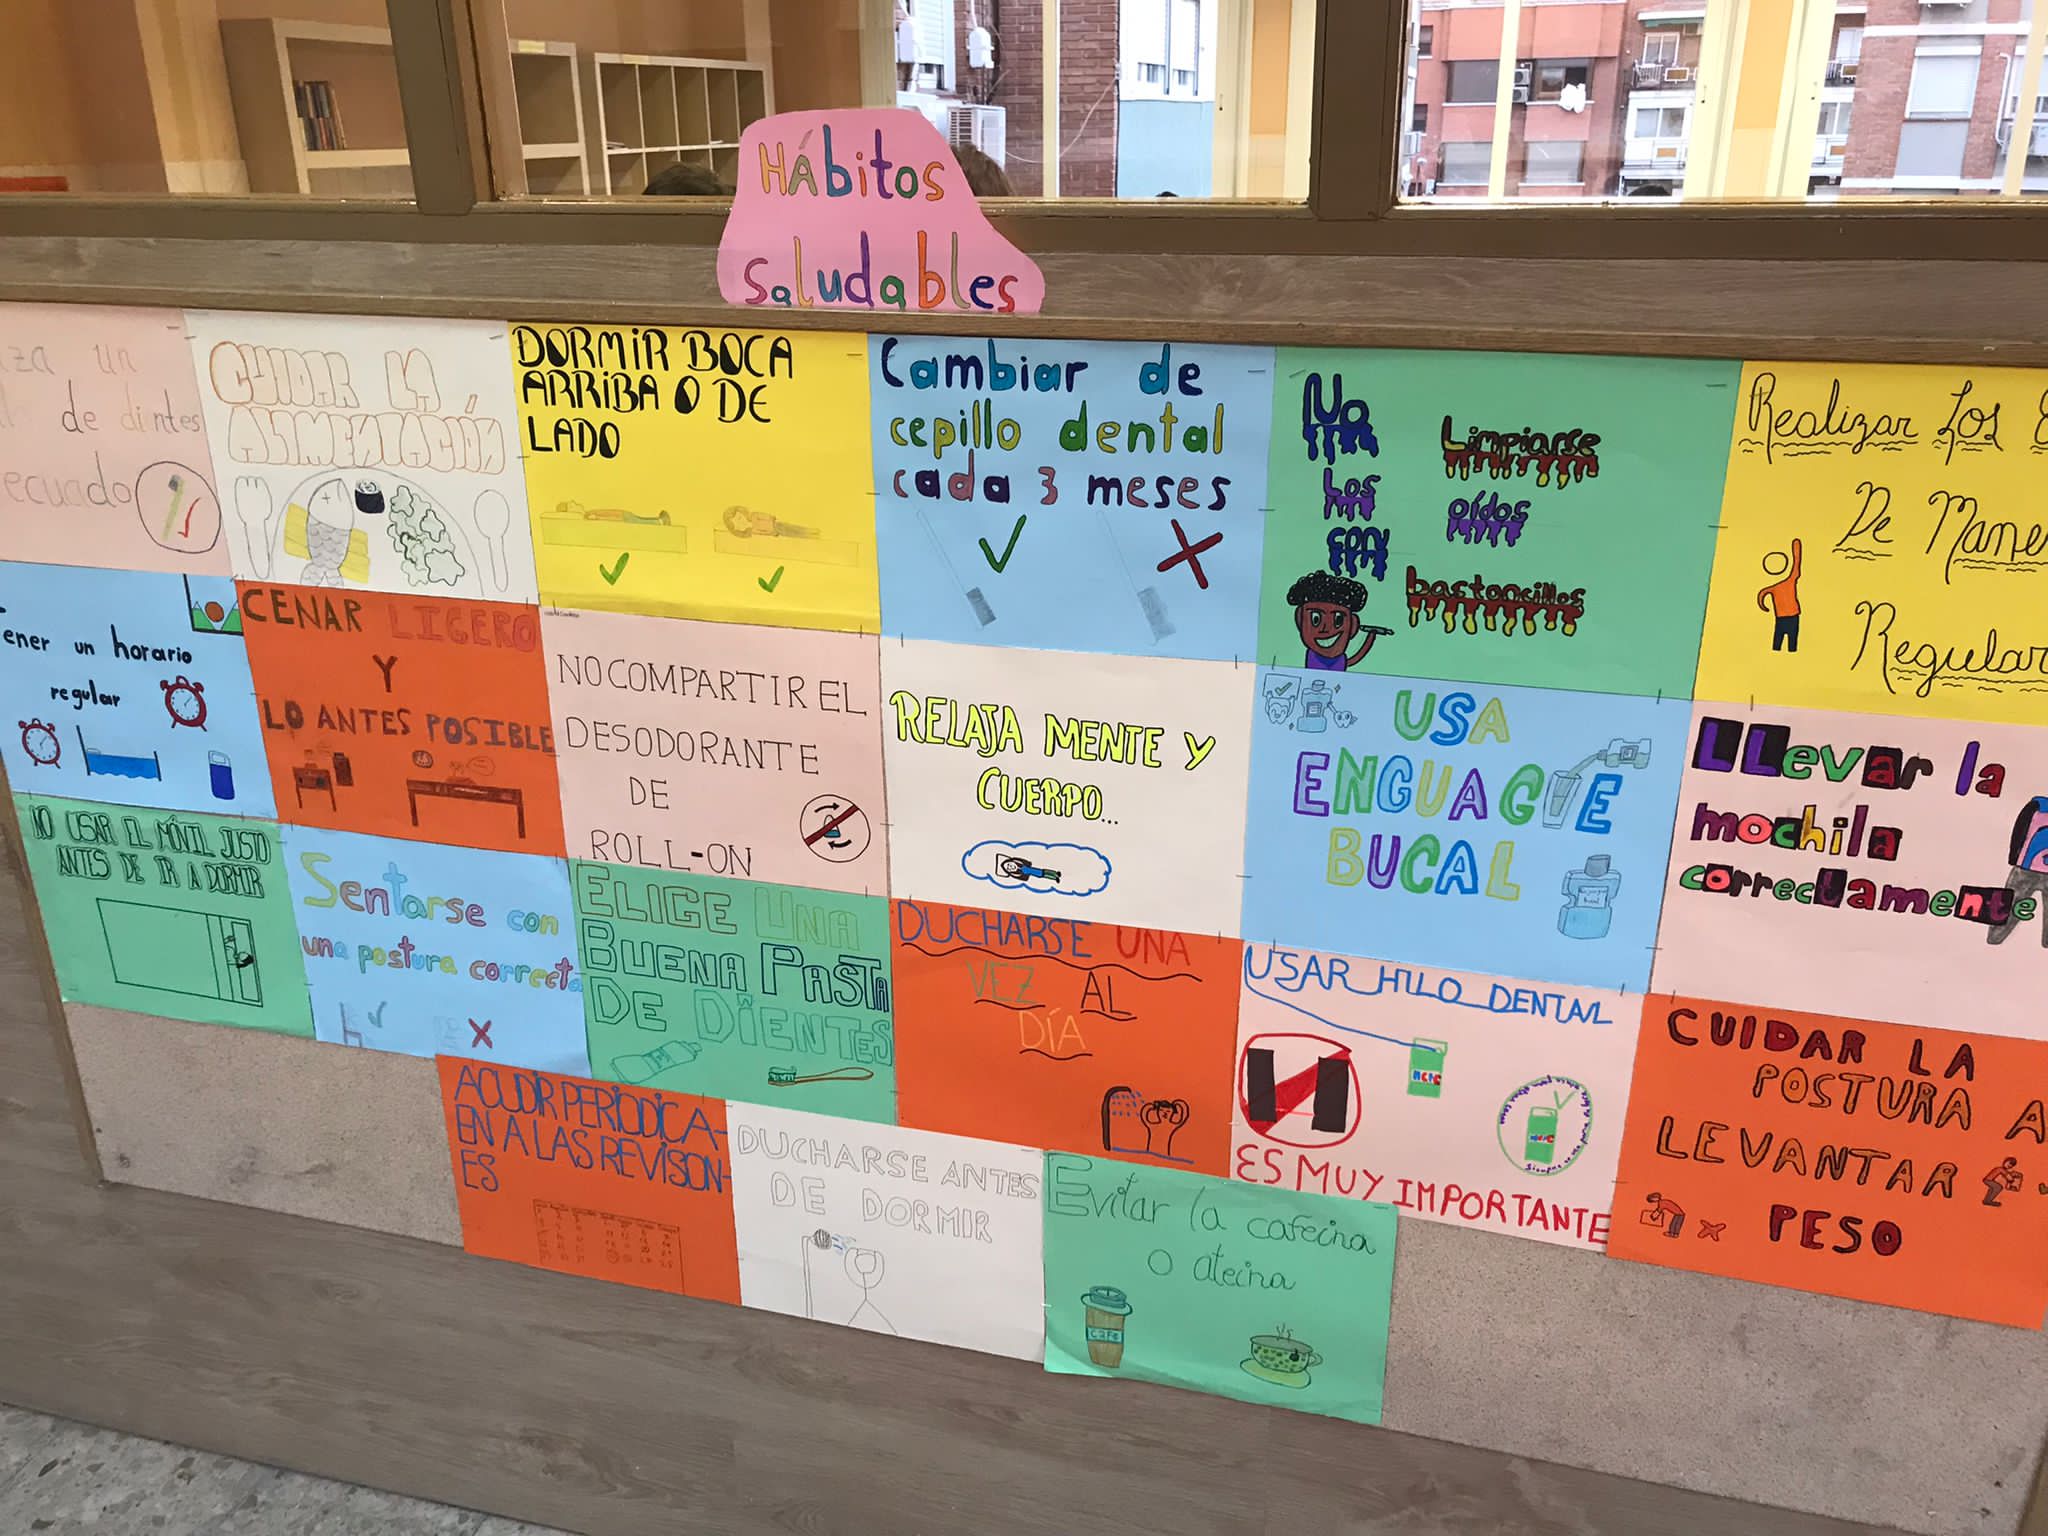 Hábitos
Saludables
un
de dientes
CUIDAR LA
ALIMENTACIÓN
DORMIR BOCA
ARRIBA O DE
LADO
Cambiar de
cepillo dental
cada 3 meses
No
Limpiarse
Los
oídos
con
bastoncillos
Realizar Los
De
Regular
ener un horario
regular
CENAR LIGERO
Y
LO ANTES POSIBLE
NO COMPARTIR EL
DESODORANTE
DE
ROLL-ON
RELAJA MENTE Y
CUERPO...
USA
ENGUAGUE
BUCAL
LLevar la
mochila
correctamente
NO USAR EL MÓVIL JUSTO
ANTES DE IR A DORMIR
Sentarse con
una postura correcta
ELIGE UNA
BUENA PASTA
DE DIENTES
DUCHARSE UNA
VEZ AL
DÍA
USAR HILO DENTAL
ES MUY IMPORTANTE
CUIDAR LA
POSTURA A
LEVANTAR
PESO
ACUDIR PERIODICA-
EN A LAS REVISON-
ES
DUCHARSE ANTES
DE DORMIR
Evitar la cafeina
o ateina
CAFE